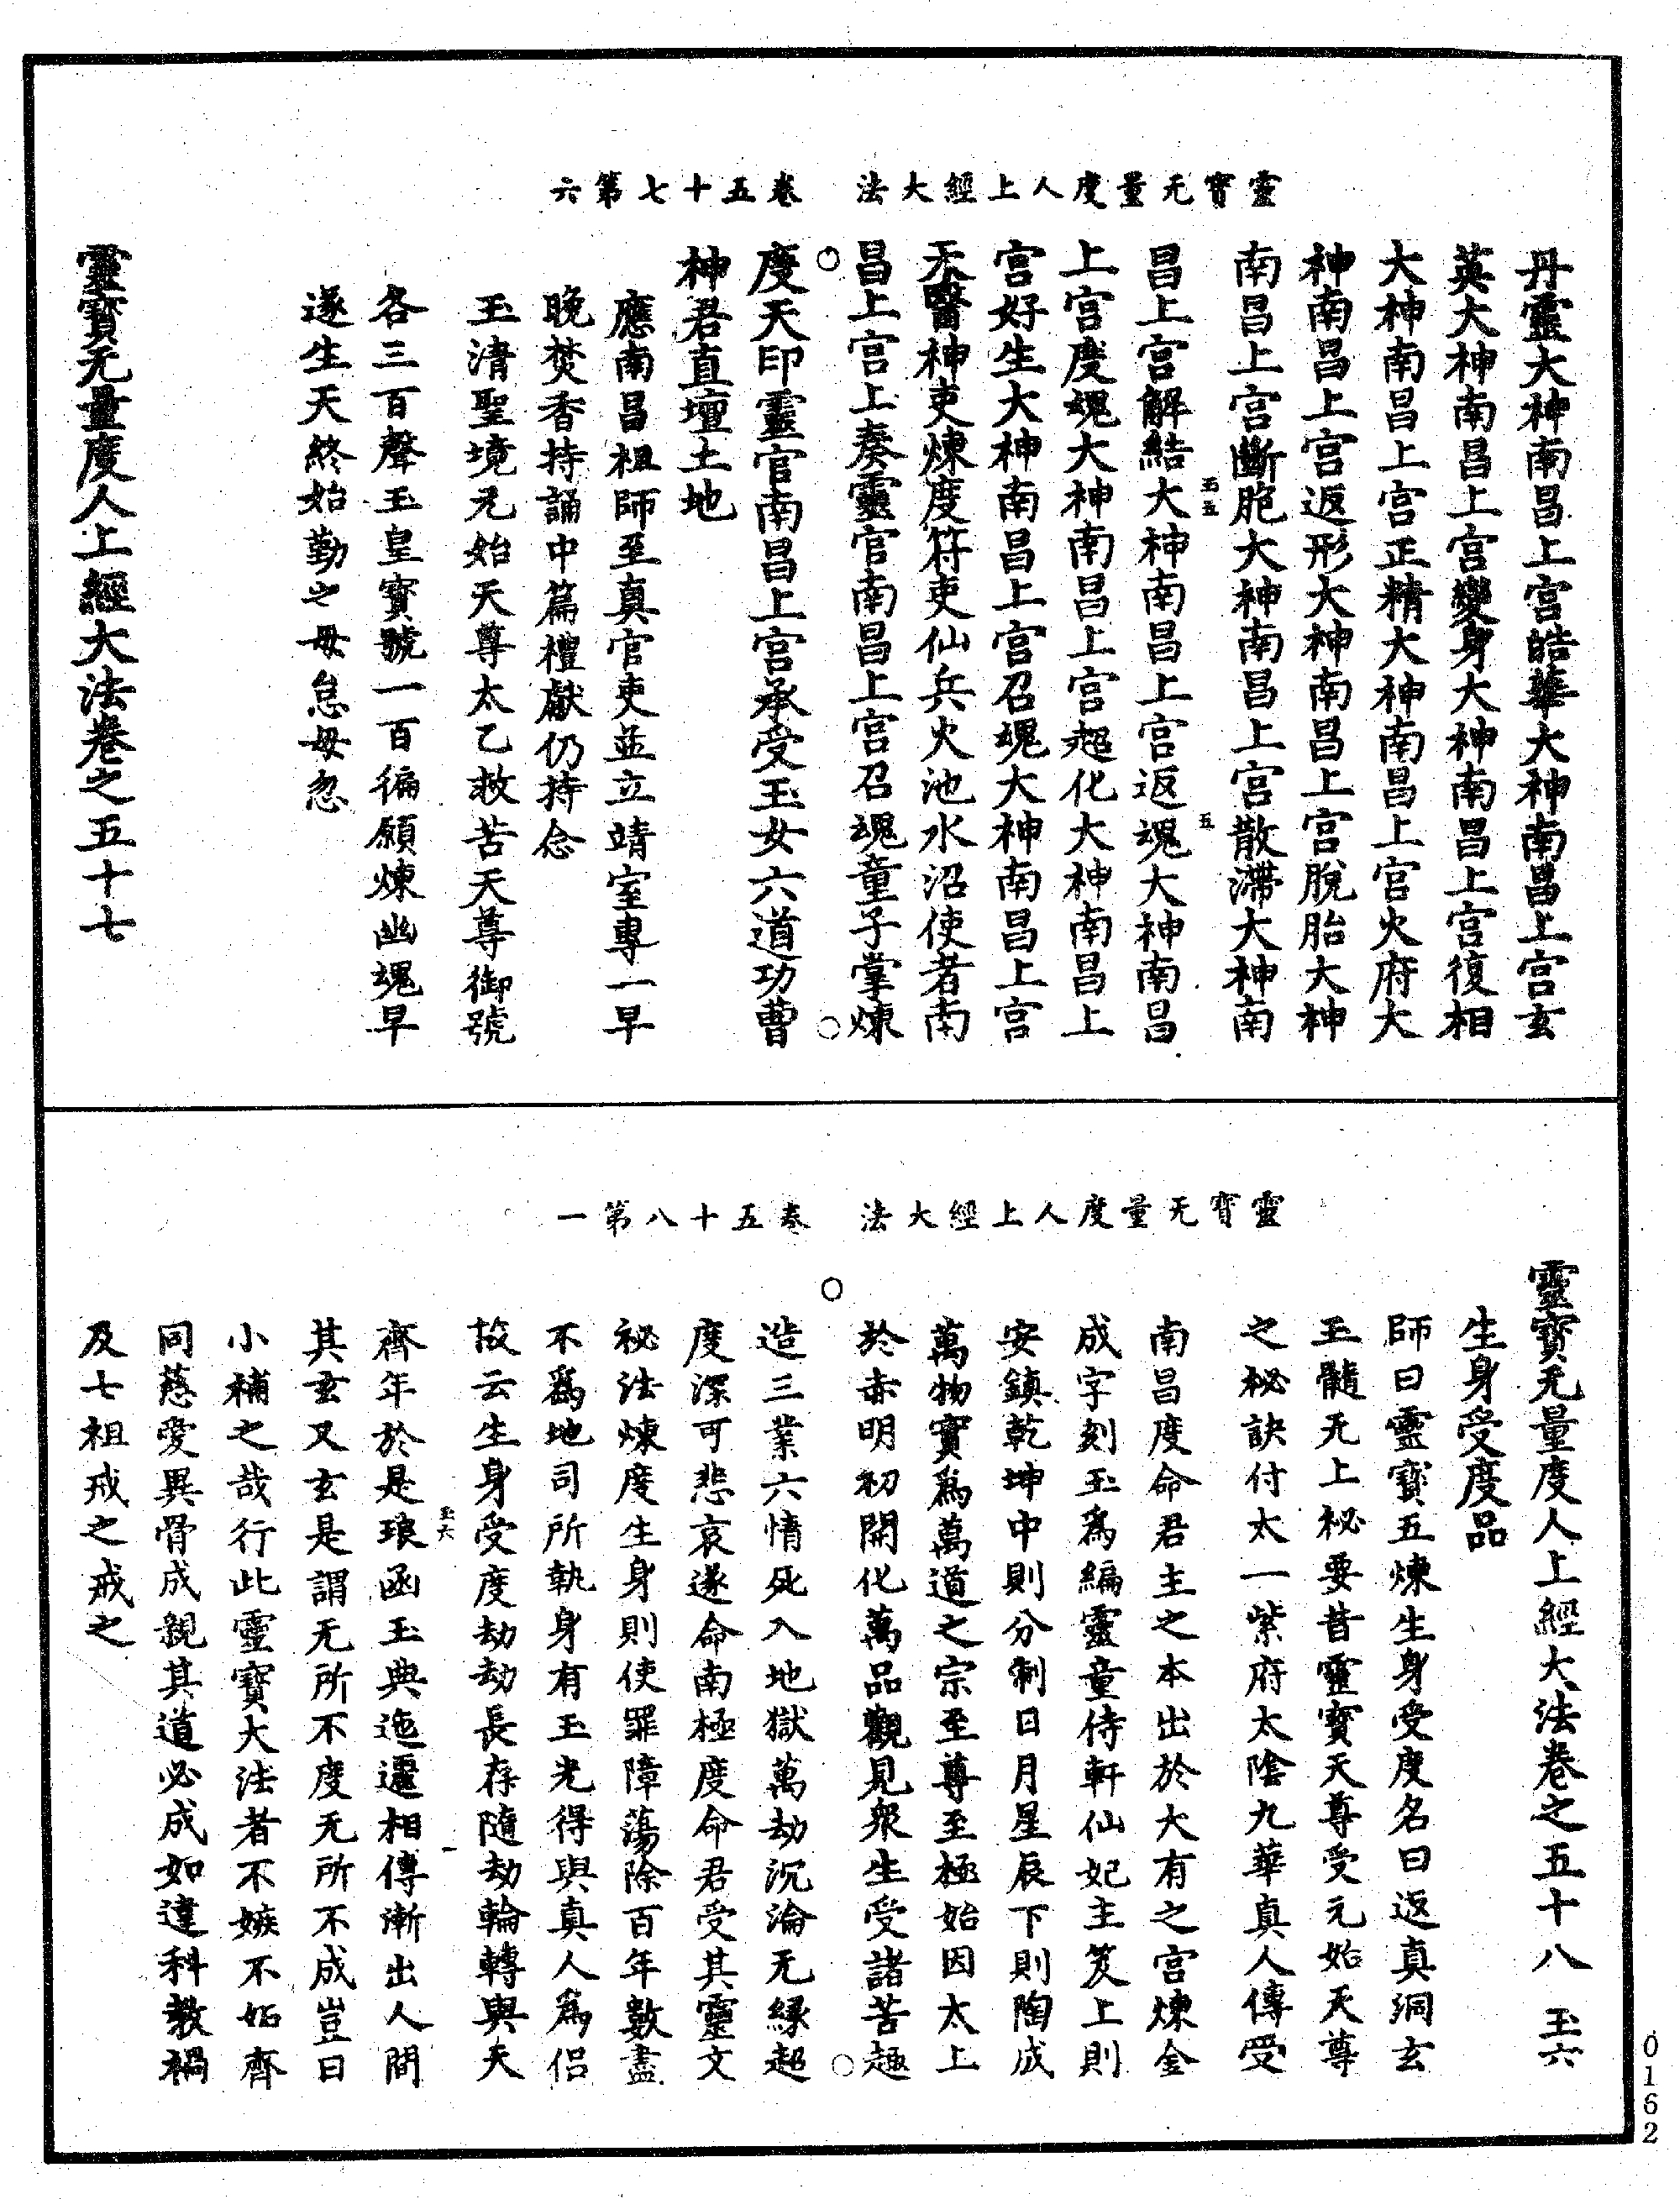 靈寶无量度人上經大法　卷五十七第六
丹靈大神南昌上宮皓華大神南昌上宮玄
英大神南昌上宮變身大神南昌上宮復相
大神南昌上宮正精大神南昌上宮火府大
神南昌上宮返形大神南昌上宮脫胎大神
南昌上宮斷胞大神南昌上宮散滯大神南
玉五　五
昌上宮解結大神南昌上宮返魂大神南昌
上宮度魂大神南昌上宮超化大神南昌上
宮好生大神南昌上宮召魂大神南昌上宮
天醫神吏煉度符吏仙兵火池水沼使者南
昌上宮上奏靈官南昌上宮召魂童子掌煉
度天印靈官南昌上宮承受玉女六道功曹
神君直壇土地
應南昌祖師至真官吏並立靖室專一早
晚焚香持誦中篇禮獻仍持念
玉清聖境元始天尊太乙救苦天尊御號
各三百聲玉皇寶號一百徧願煉幽魂早
遂生天終始勤之毋怠毋忽
靈寶无量度人上經大法卷之五十七
靈寶无量度人上經大法　卷五十八第一
靈寶无量度人上經大法卷之五十八　玉六
生身受度品
師曰靈寶五煉生身受度名曰返真洞玄
玉髓无上祕要昔靈寶天尊受元始天尊
之祕訣付太一紫府太陰九華真人傳受
南昌度命君主之本出於大有之宮煉金
成字刻玉爲編靈童侍軒仙妃主笈上則
安鎮乾坤中則分制日月星辰下則陶成
萬物寶爲萬道之宗至尊至極始因太上
於赤明初開化萬品觀見衆生受諸苦趣
造三業六情死入地獄萬劫沉淪无緣超
度深可悲哀遂命南極度命君受其靈文
祕法煉度生身則使罪障蕩除百年數盡
不爲地司所執身有玉光得與真人爲侶
故云生身受度劫劫長存隨劫輪轉與天
玉六　一
齊年於是琅函玉典迤邐相傳漸出人間
其玄又玄是謂无所不度无所不成豈曰
小補之哉行此靈寶大法者不嫉不妬齊
同慈愛異骨成親其道必成如違科教禍
及七祖戒之戒之
0162